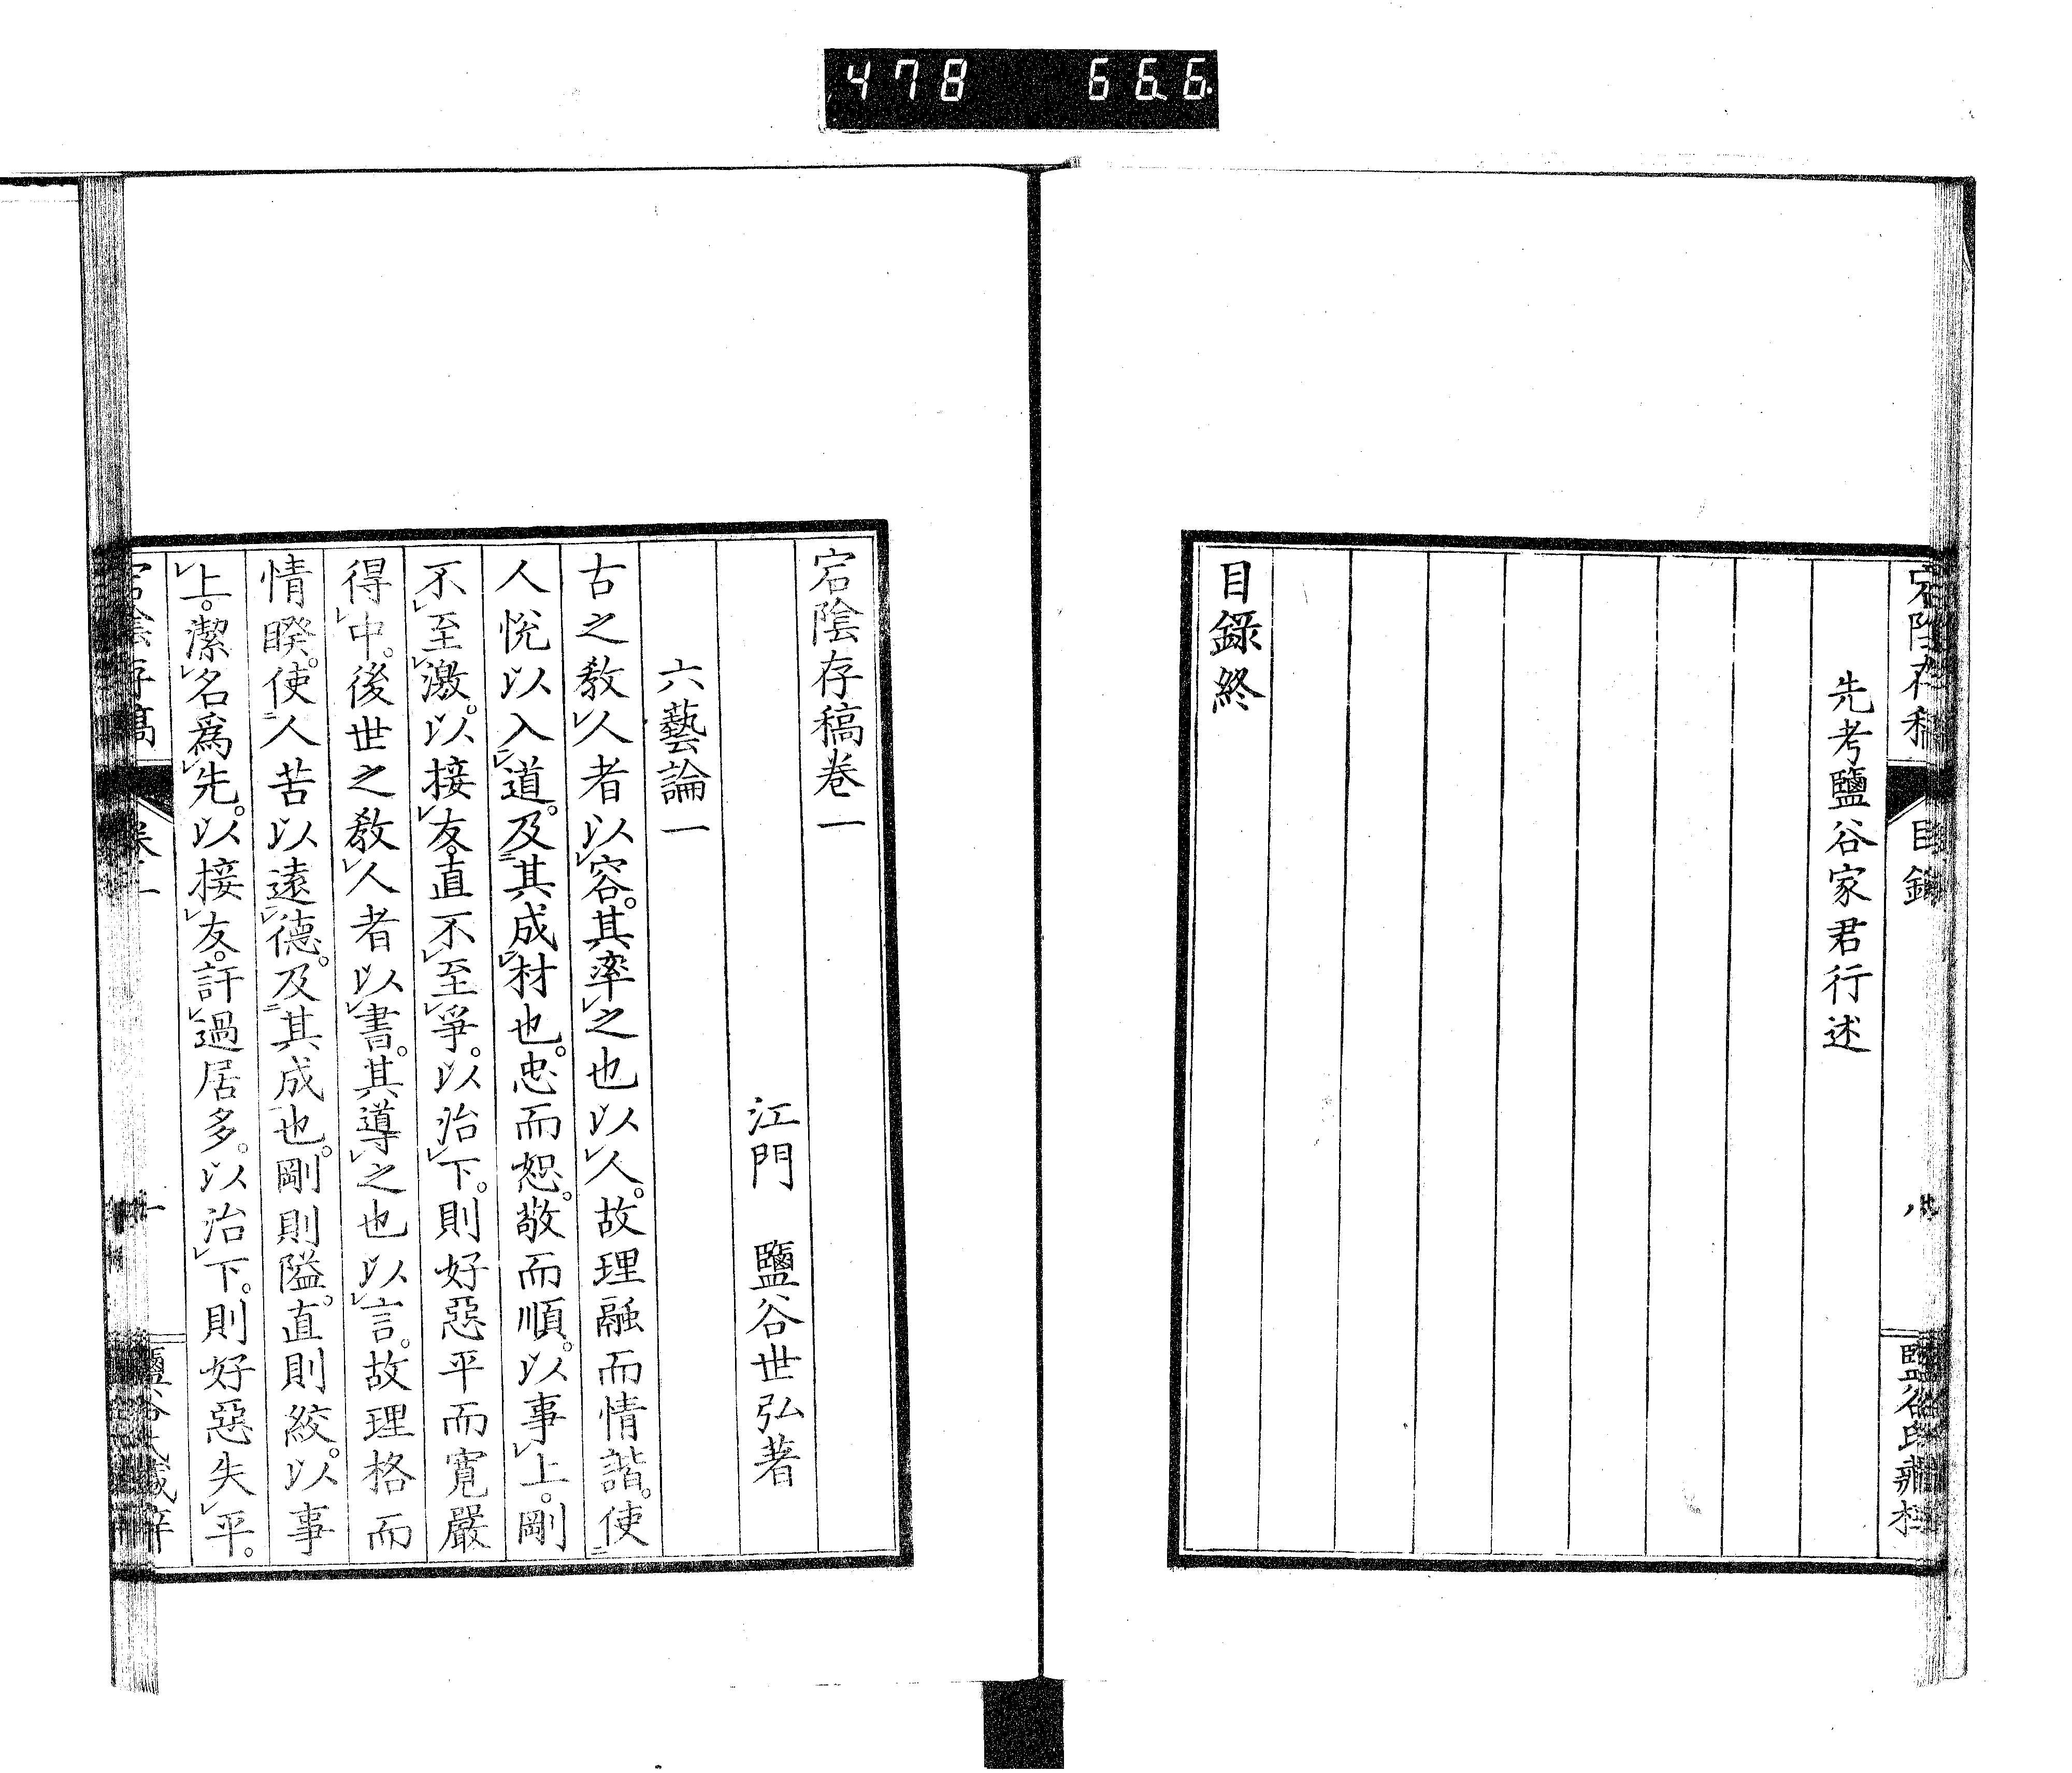 478 666
宕陰存稿
目錄
八
先考鹽谷家君行述
目錄終
宕陰存稿卷一
江門 鹽谷世弘著
六藝論一
古之教人者以容。其率之也以人。故理融而情諧。使
人悅以入道。及其成材也。忠而恕。敬而順。以事上。剛
不至激。以接友。直不至爭。以治下。則好惡平而寬嚴
得中。後世之教人者以書。其導之也以言。故理格而
情睽。使人苦以遠德。及其成也。剛則隘。直則絞。以事
上。潔名爲先。以接友。訐過居多。以治下。則好惡失平。
宕陰存稿
卷一
一